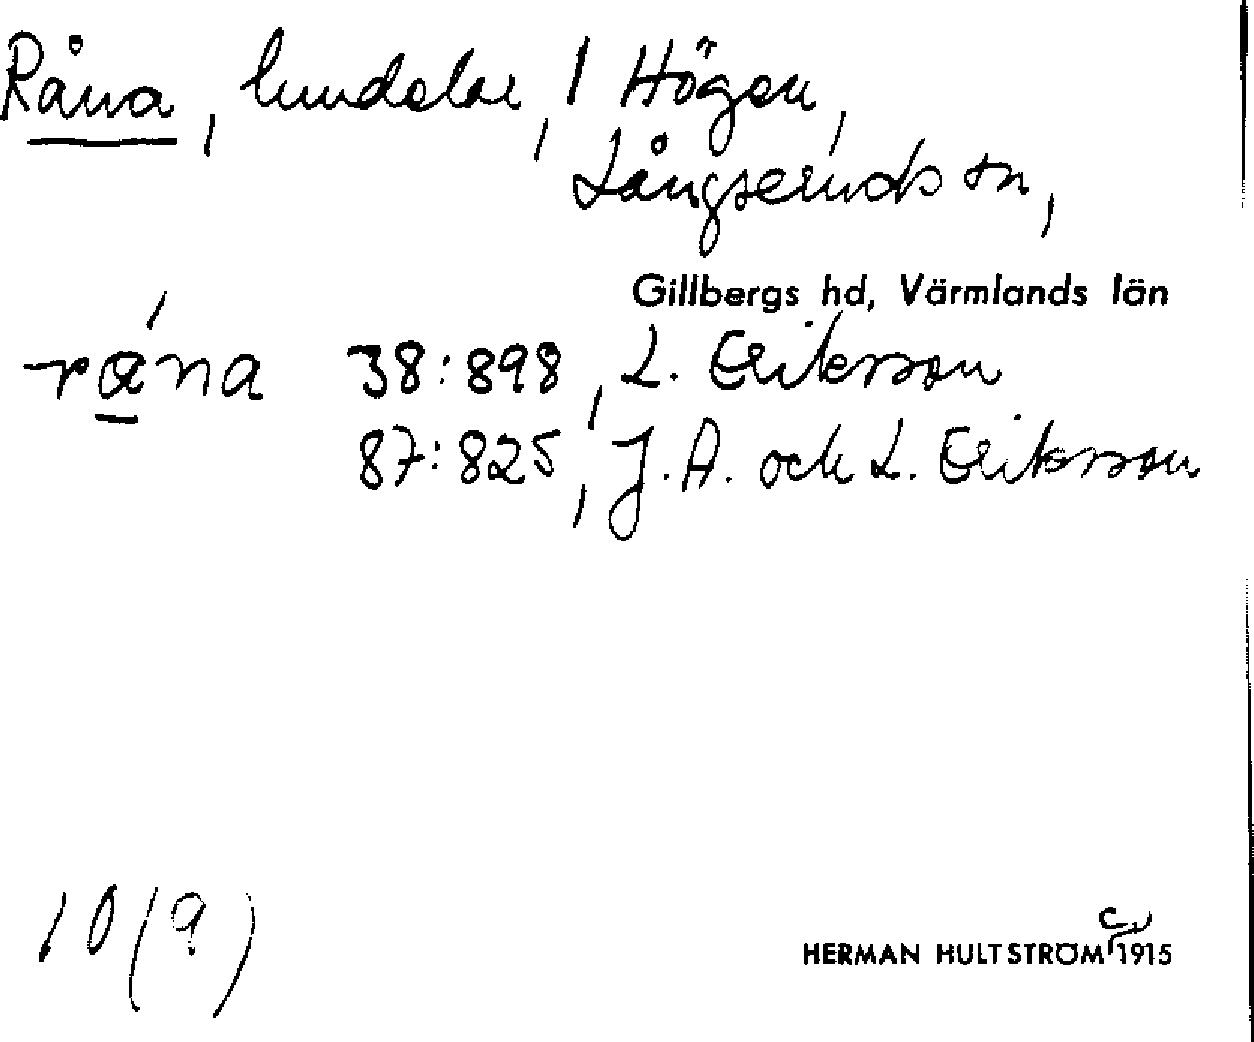 Råna, hundelar, / Högen,
Långseruds sn,
Gillbergs hd, Värmlands län
råna 38:898, L. Eriksson
87:825, J. A. och L. Eriksson
10(9)
HERMAN HULTSTRÖM 1915